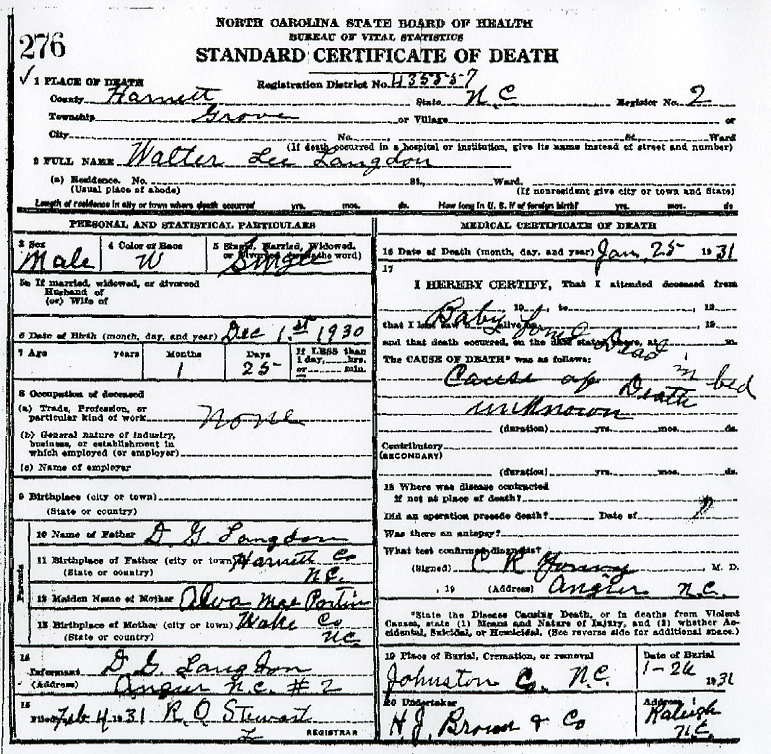 276
NORTH CAROLINA STATE BOARD OF HEALTH
BUREAU OF VITAL STATISTICS
STANDARD CERTIFICATE OF DEATH
1 PLACE OF DEATH
Registration District No. 435557
County Harnett State N.C Register No. 2
Township Grove or Village or
City No. St. Ward
(If death occurred in a hospital or institution, give its name instead of street and number)
2 FULL NAME Walter Lee Langdon
(a) Residence. No. St., Ward.
(Usual place of abode) (If nonresident give city or town and State)
Length of residence in city or town where death occurred yrs. mos. ds. How long in U. S. if of foreign birth? yrs. mos. ds
PERSONAL AND STATISTICAL PARTICULARS
3 Sex 4 Color or Race 5 Single, Married, Widowed,
or Divorced (write the word)
Male W Single
5a If married, widowed, or divorced
Husband of
(or) Wife of
6 Date of Birth (month, day, and year) Dec 1.st 1930
7 Age years Months Days If LESS than
1 day, hrs.
or min.
1 25
8 Occupation of deceased
(a) Trade, Profession, or
particular kind of work None
(b) General nature of industry,
business, or establishment in
which employed (or employer)
(c) Name of employer
9 Birthplace (city or town)
(State or country)
Parents
10 Name of Father D G Langdon
11 Birthplace of Father (city or town) Harnett Co
(State or country) N.C.
12 Maiden Name of Mother Alva Mae
13 Birthplace of Mother (city or town) Wake Co
(State or country) N.C.
14
Informant D. G. Langdon
(Address) Angier N.C. #2
15
Filed Feb 4 1931 R. O. Stewart
REGISTRAR
MEDICAL CERTIFICATE OF DEATH
16 Date of Death (month, day, and year) Jan. 25 1931
17
I HEREBY CERTIFY, That I attended deceased from
19 , to 19
that I last saw h alive on 19
Baby found Dead in bed
and that death occurred, on the date stated above, at m.
The CAUSE OF DEATH* was as follows:
Cause of Death
unknown
(duration) yrs. mos. ds.
Contributory
(SECONDARY)
(duration) yrs. mos. ds.
18 Where was disease contracted
if not at place of death?
Did an operation precede death? Date of
Was there an autopsy?
What test confirmed diagnosis?
(Signed) C R Young M. D.
, 19 (Address) Angier N.C.
*State the Disease Causing Death, or in deaths from Violent
Causes, state (1) Means and Nature of Injury, and (2) whether Ac-
cidental, Suicidal, or Homicidal. (See reverse side for additional space.)
19 Place of Burial, Cremation, or removal Date of Burial
Johnston Co. N.C. 1-26 1931
20 Undertaker Address
H. J. Brown & Co Raleigh
N.C.